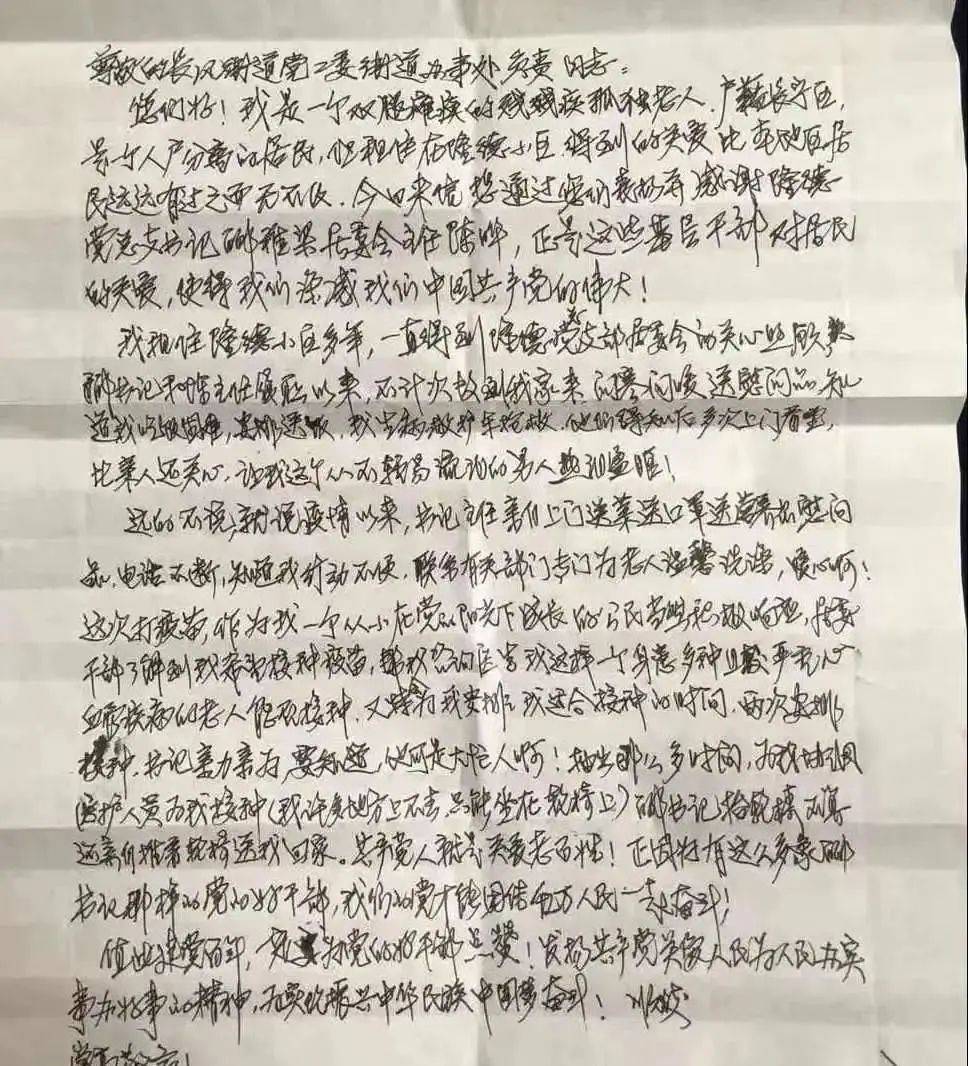 尊敬的长风街道党工委街道办事处负责同志:
您们好!我是一个双腿瘫痪的残疾孤独老人,户籍长宁区,
是个人户分离的居民,但租住在隆德小区,得到的关爱比本地区居
民远远有过之而无不及。今日来信想通过您们表扬并感谢隆德
党总支书记郦雅梁居委会主任陈晔,正是这些基层干部对居民
的关爱,使得我们深感我们中国共产党的伟大!
我租住隆德小区多年,一直得到隆德党支部居委会的关心照顾,
郦书记和陈主任履职以来,不计次数到我家来问寒问暖送慰问品,知
道我吃饭困难,安排送饭。我生病救护车抢救,他们得知后多次上门看望,
比亲人还关心,让我这个从不轻易流泪的男人热泪盈眶!
远的不说,就说疫情以来,书记主任亲自上门送菜送口罩送营养品慰问
品,电话不断,知道我行动不便,联系有关部门专门为老人温馨洗澡,暖心啊!
这次打疫苗,作为我一个从小在党的阳光下成长的公民当然积极响应,居委
干部了解到我希望接种疫苗,帮我咨询医生我这样一个身患多种严重心
血管疾病的老人能否接种,又特为我安排了我适合接种的时间,两次安排
接种,书记亲力亲为,要知道,他可是大忙人啊!抽出那么多时间,为我协调
医护人员为我接种(我许多地方上不去,只能坐在轮椅上)郦书记抬轮椅不算
还亲自推着轮椅送我回家。共产党人就是关爱老百姓!正因为有这么多象郦
书记那样的党的好干部,我们的党才能团结千万人民一起奋斗!
值此建党百年,一定要为党的好干部点赞!发扬共产党关爱人民为人民办实
事办好事的精神,为实现振兴中华民族中国梦奋斗!